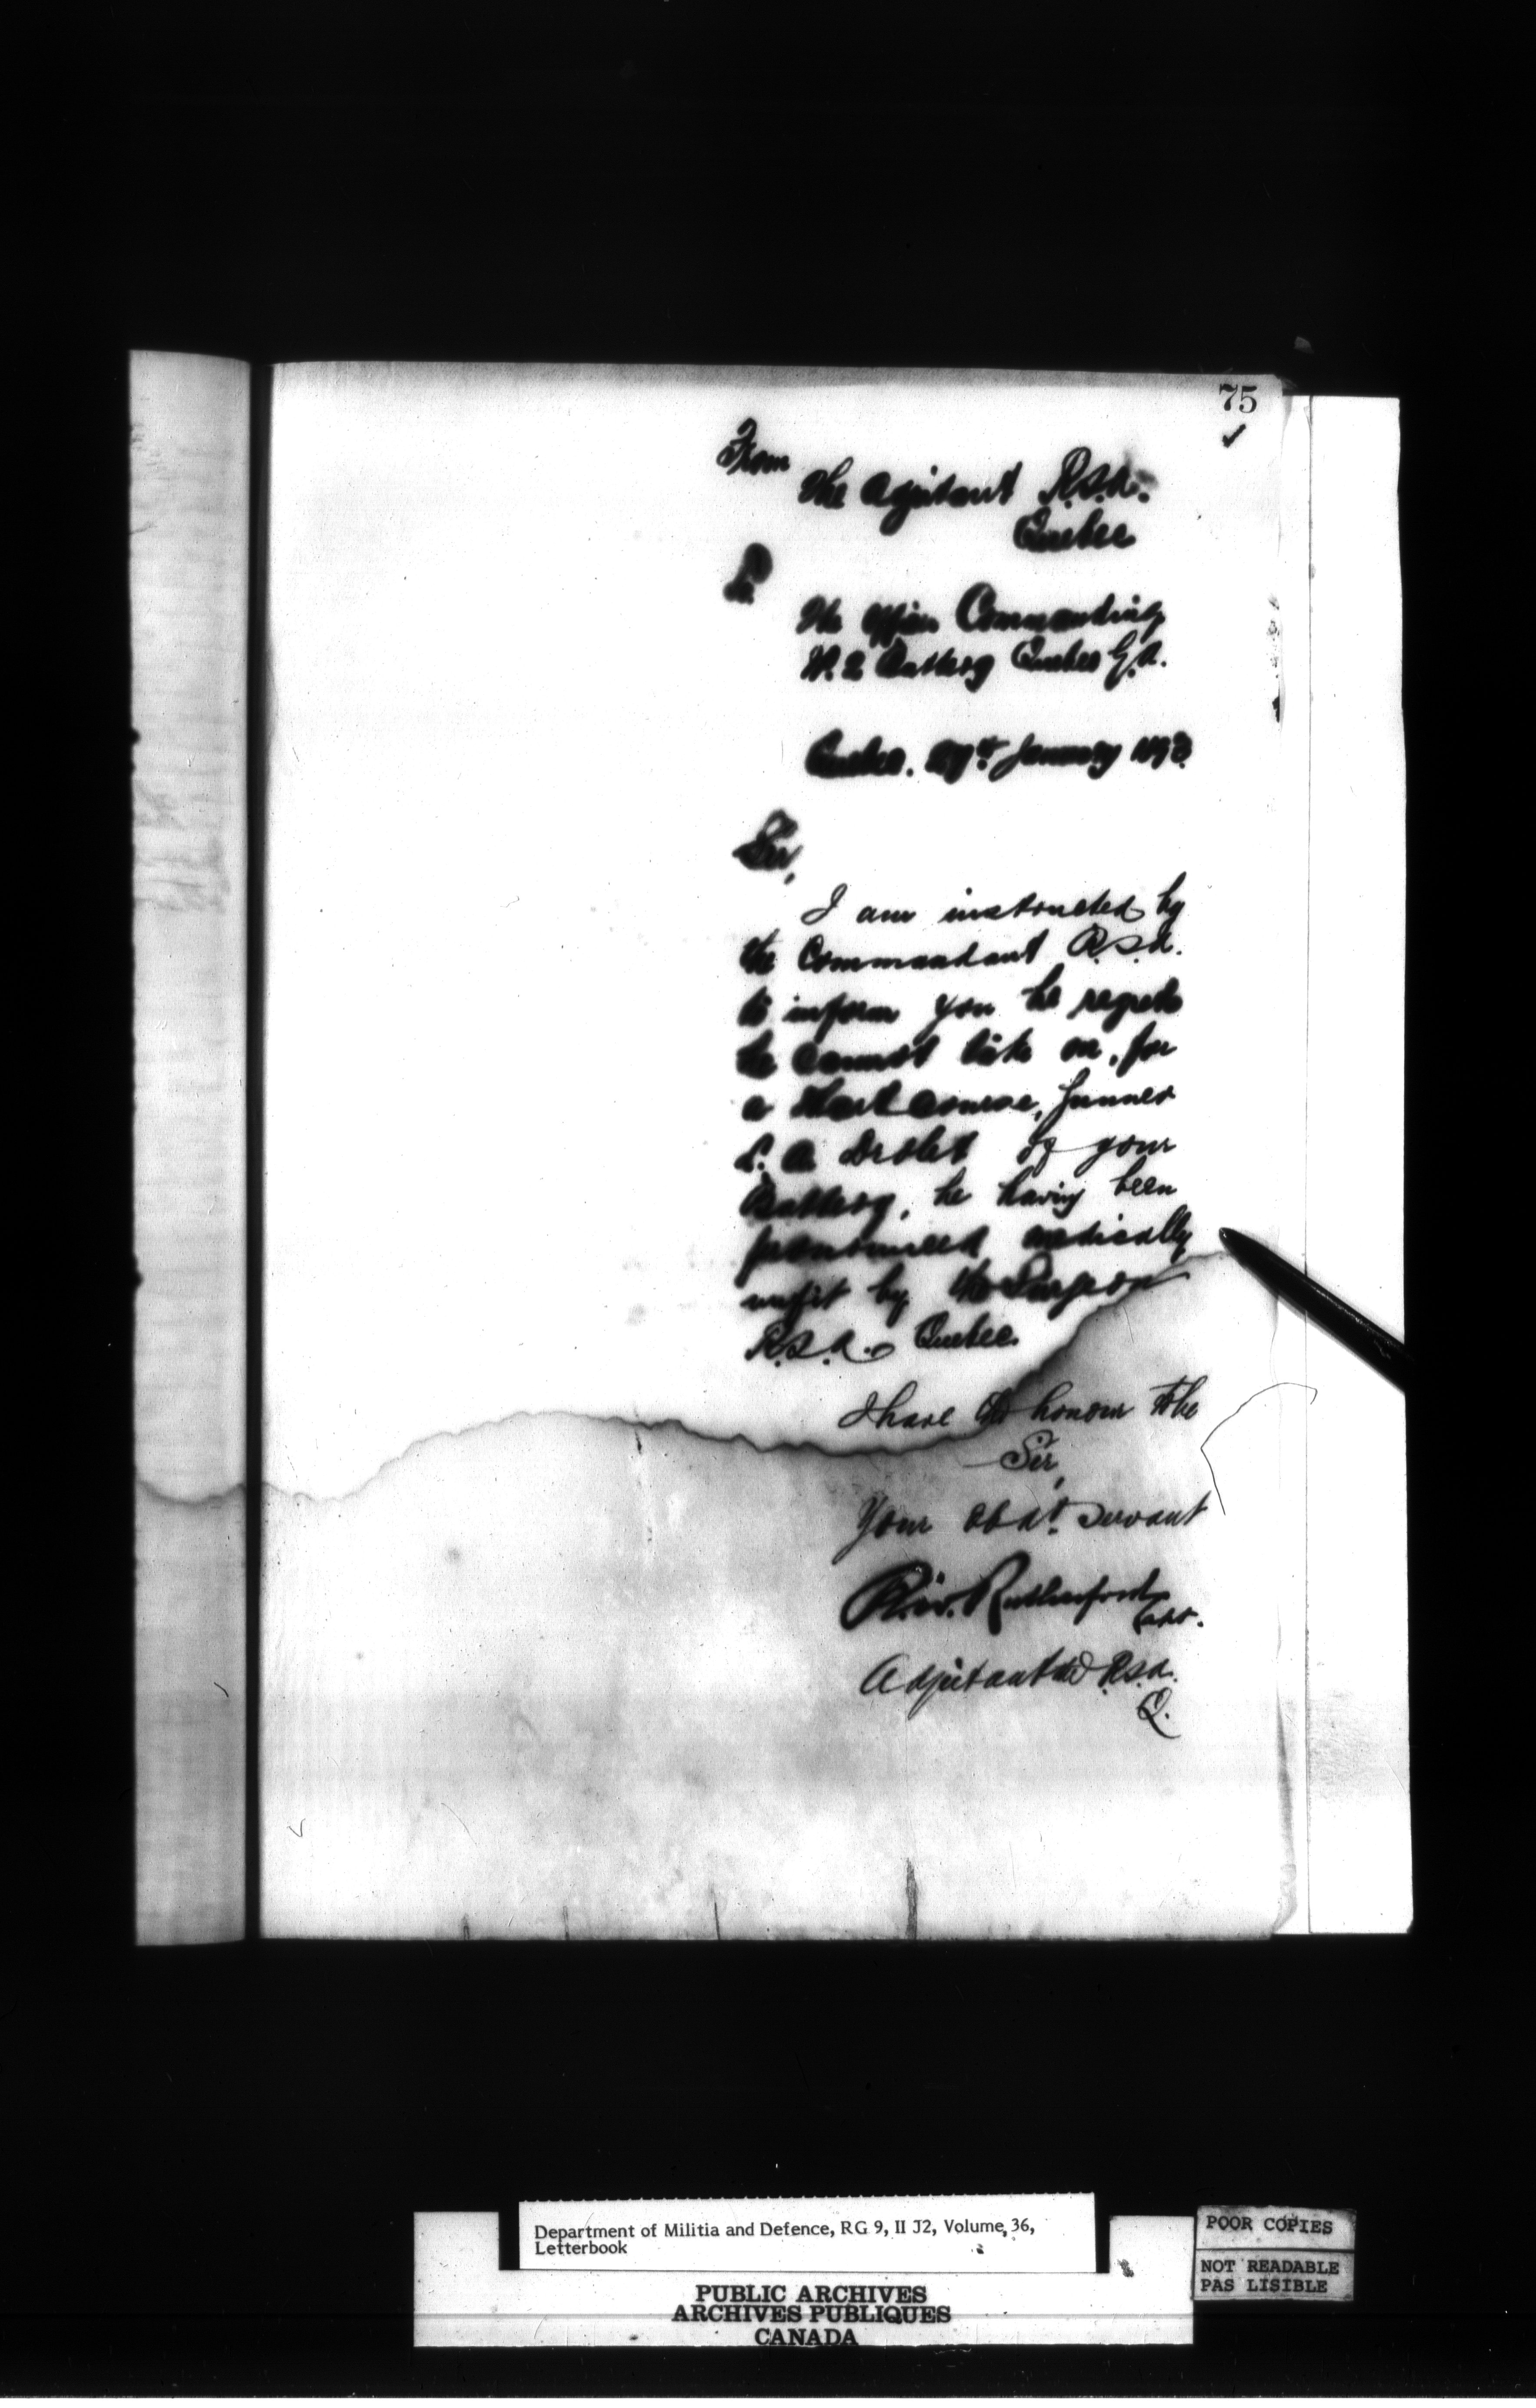 75
From
The Adjutant R.S.A.
Quebec
To
The Officer Commanding
No. 2 Battery Quebec G.A.
Quebec. January 1893.
Sir,
I am instructed by
the Commandant R.S.A.
to inform you he regrets
he cannot take on, for
a Short Course, Gunner
Drolet of your
Battery, he having been
pronounced medically
unfit by the Surgeon
R.S.A. Quebec.
I have the honour to be
Sir,
Your obdt. servant
R.W. Rutherford Capt.
Adjutant R.S.A.
Q.
Department of Militia and Defence, RG 9, II J2, Volume, 36,
Letterbook
PUBLIC ARCHIVES
ARCHIVES PUBLIQUES
CANADA
POOR COPIES
NOT READABLE
PAS LISIBLE